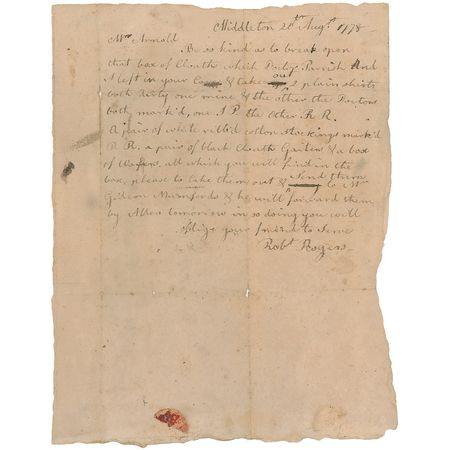 Middleton 20th Augt. 1778
Mrs Arnold
Be so kind as to break open
that box of Cloath which Doctr. Parrish And
I left in your & take ou 2 plain shirts
both dirty one mine & the other the Doctors
both mark'd, one I P the other R R.
A pair of white ribb'd cotton Stockings mark'd
R R, a pair of black Cloath Garters & a box
of Wafers, all which you will find in the
box, please to take them out & Send them
to Mr
Gideon Mumfords & he will forward them
by tomorrow in so doing you will
Oblige your friend to Serve
Robt. Rogers